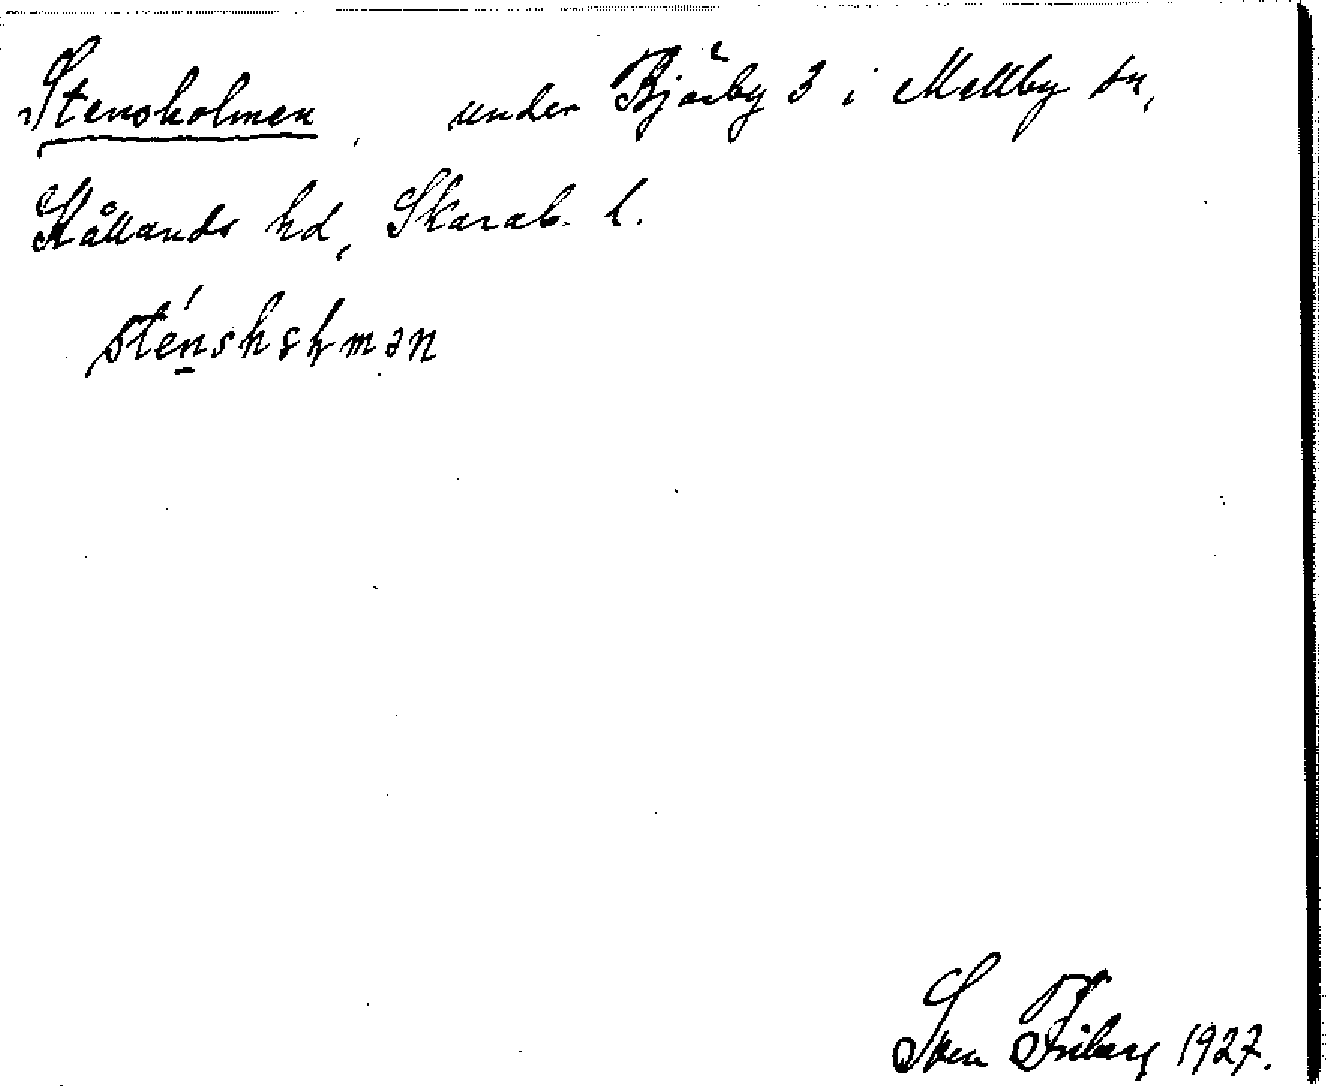 Stensholmen, under Bjärby 3 i Mellby sn,
Kållands hd, Skarab. l.
Sven Friberg 1927.